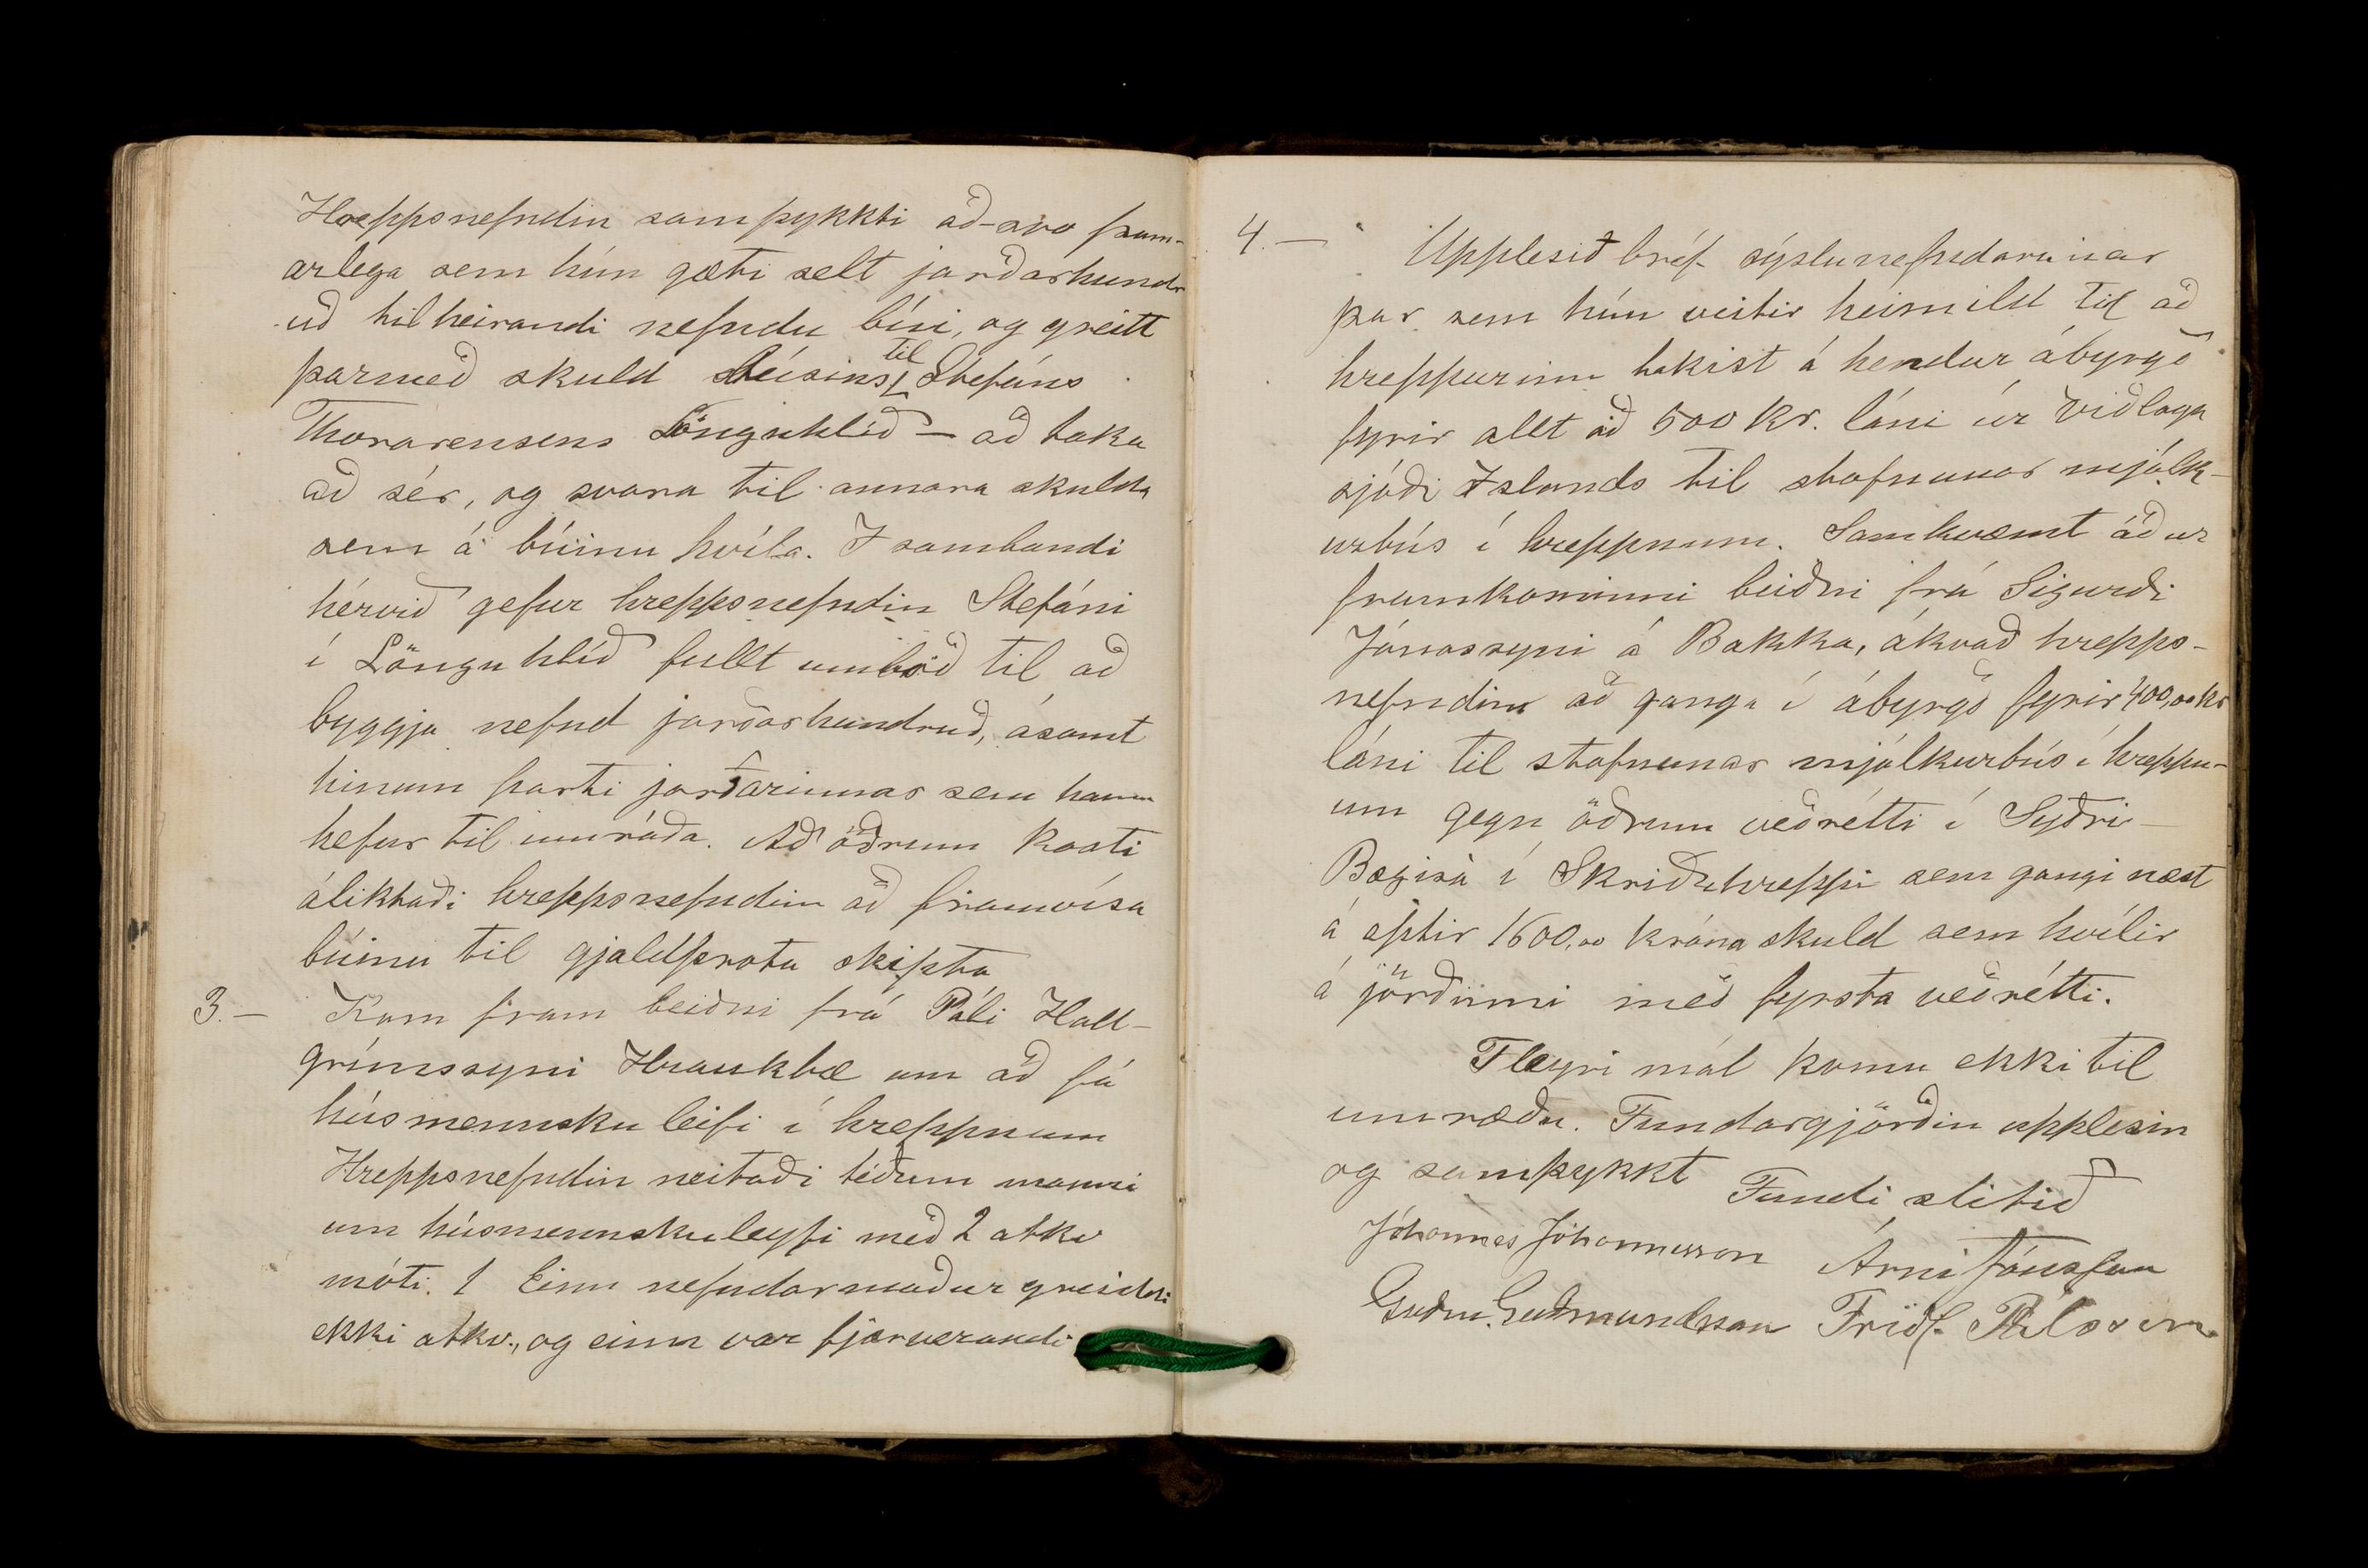 Hreppsnefndin samþykkti að svo fram-
arlega sem hún gæti selt jarðarhundr
uð tilheirandi nefndu búi, og greitt
þarmeð skuld búsins til Stefáns
Thorarensens Lönguhlíð – að taka
að sér, og svara til annara skulda
sem á búinu hvíla. I sambandi
hérvið gefur hreppsnefndin Stefáni
í Lönguhlíð fullt umboð til að
byggja nefnd jarðarhundruð, ásamt
hinum parti jarðarinnar sem hann
hefur til umráða. Að öðrum kosti
áliktaði hreppsnefndin að framvísa
búinu til gjaldþrota skipta
3.– Kom fram beiðni frá Páli Hall-
grímssyni Hraukbæ um að fá
húsmennsku leifi í hreppnum
Hreppsnefndin neitaði téðum manni
um húsmennskuleyfi með 2 atkv
móti. 1 Einn nefndarmaður greiddi
ekki atkv., og einn var fjærverandi
4.– Upplesið bréf sýslunefndarinnar
þar sem hún veitir heimild til að
hreppurinn takist á hendur ábyrgð
fyrir allt að 500 kr. láni úr Viðlaga
sjóði Islands til stofnunar mjólk-
urbús í hreppnum. Samkvæmt áður
framkominni beiðni frá Sigurði
Jónassyni á Bakka, ákvað hrepps-
nefndin að ganga í ábyrgð fyrir 400,00 kr
láni til stofnunar mjólkurbús í hreppn-
um gegn öðrum veðrétti í Syðri-
Bægisá í Skriðuhreppi sem gangi næst
á eptir 1600,00 króna skuld sem hvílir
á jörðinni með fyrsta veðrétti.
Fleyri mál komu ekki til
umræðu. Fundargjörðin upplesin
og samþykkt Fundi slitið
Jóhannes Jóhannesson Árni Jónsson
Guðm. Guðmundsson Friðf. Pálsson